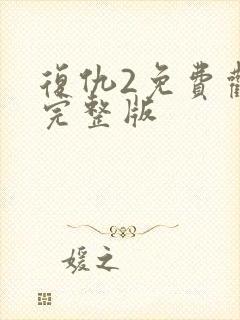 復仇2免費
完整版
媛之